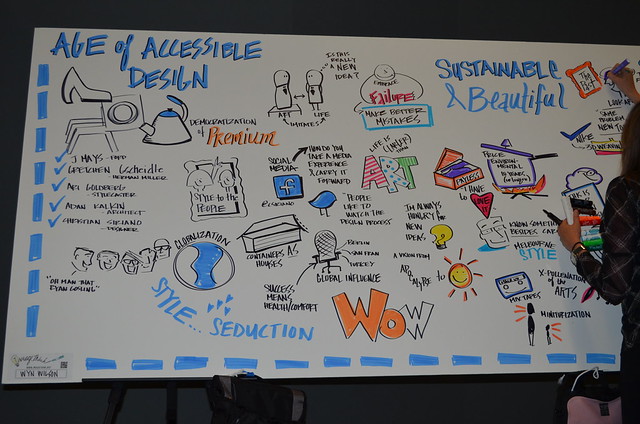 AGE of ACCESSIBLE
DESIGN
DEMOCRATIZATION
of Premium
J MAYS - FORD
GRETCHEN Gscheidle
HERMAN MILLER
ARI GOLDBERG
STYLECASTER
ADAM KALKIN
ARCHITECT
CHRISTIAN SIRIANO
DESIGNER
STYLE to the
PEOPLE
"OH MAN THAT
RYAN GOSLING"
GLOBALIZATION
STYLE... SEDUCTION
IS THIS
REALLY
A NEW
IDEA?
ART
LIFE
IMITATES
EMBRACE
Failure
MAKE BETTER
MISTAKES
SOCIAL
MEDIA
f
HOW DO YOU
TAKE A MEDIA
EXPERIENCE
& CARRY IT
FORWARD
LIFE IS
ART
PEOPLE
LIKE TO
WATCH THE
DESIGN PROCESS
CONTAINERS AS
HOUSES
BERLIN
SAN FRAN
TURKEY
GLOBAL INFLUENCE
SUCCESS
MEANS
HEALTH/COMFORT
WOW
SUSTAINABLE
& Beautiful
The
Past
SAME
PROBLEM
NEW
NIKE
PAYLESS
I HAVE
to
I'M ALWAYS
HUNGRY for
NEW
IDEAS
A VISION FROM
to
KNOW
BESIDES
MELBOURNE
STYLE
X-POLLENATION
of the
ARTS
MIX TAPES
MINITUFIZATION
WYN WILSON